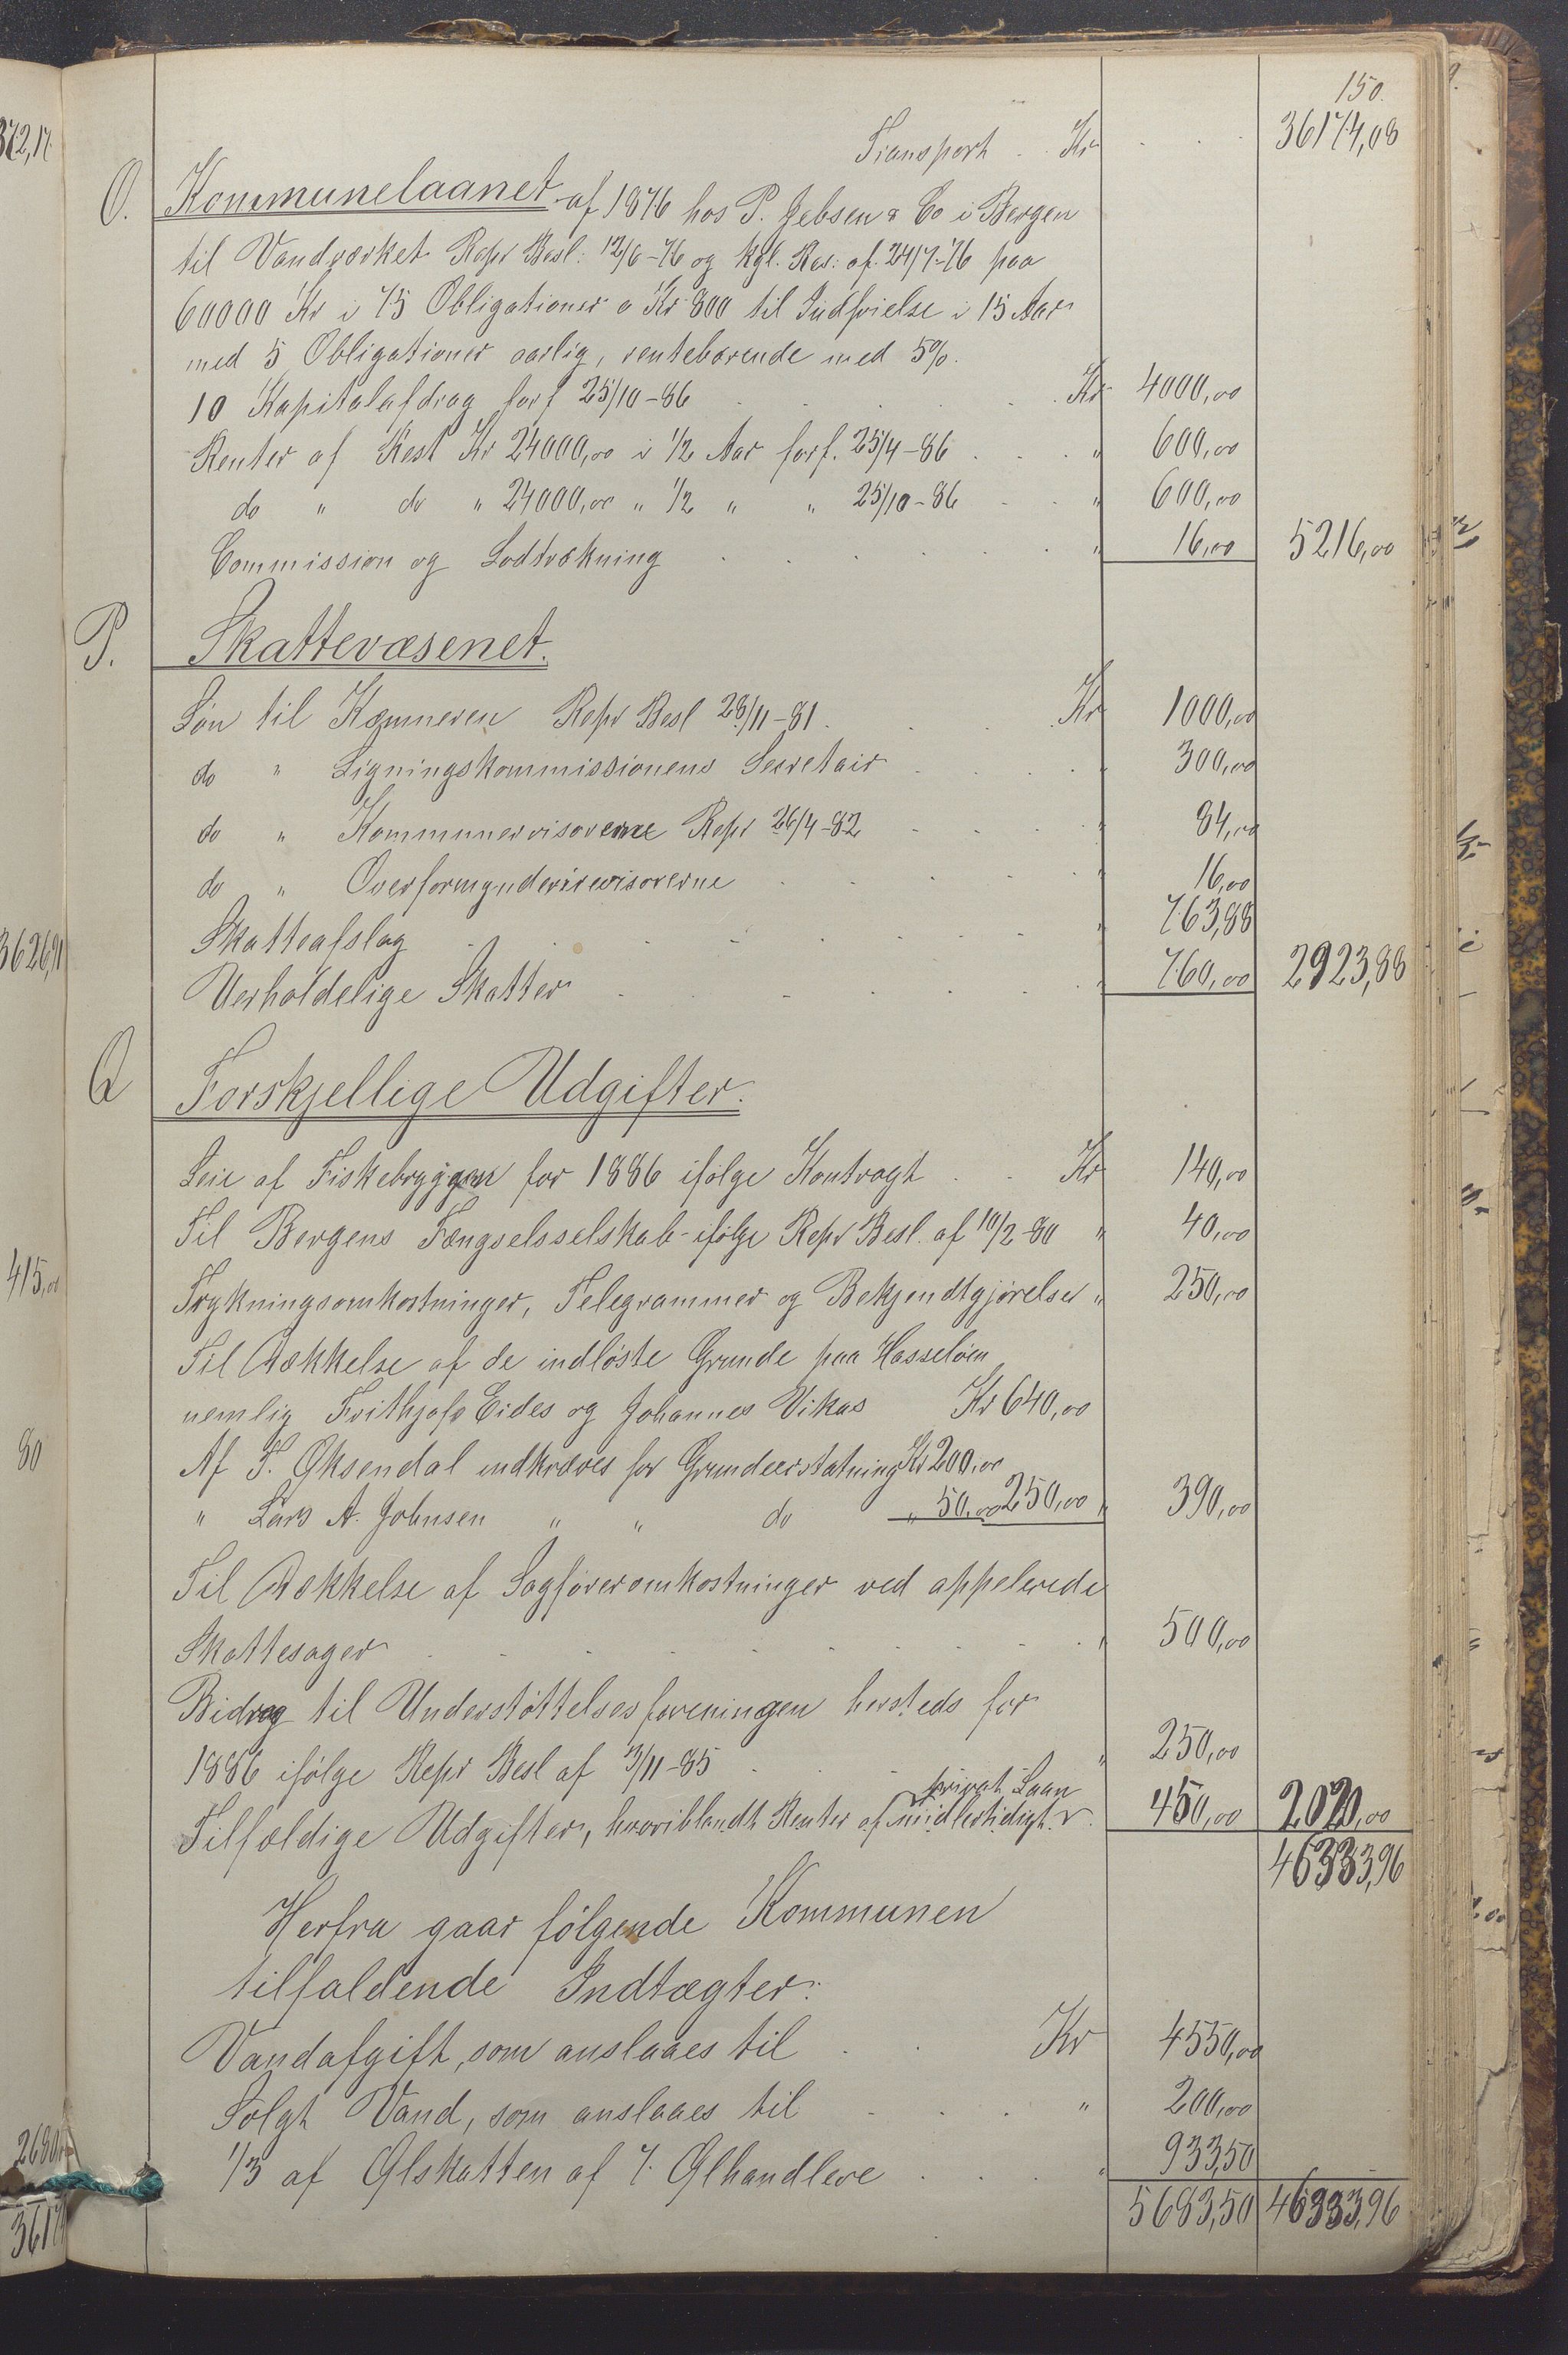 150.
Transport Kr 36174,08
O. Kommunelaanet af 1876 hos P. Jebsen & Co i Bergen
til Vandværket Repr Besl: 12/6-76 og kgl. Res: af 24/7-76 paa
60000 Kr i 75 Obligationer a Kr 800 til Indfrielse i 15 Aar
med 5 Obligationer aarlig, rentebærende med 5%.
10 Kapitalafdrag forf 25/10-86 Kr 4000,00
Renter af Rest Kr 24000,00 i 1/2 Aar forf. 25/4-86 " 600,00
do " do " 24000,00 " 1/2 " " 25/10-86 " 600,00
Commission og Lodtrækning " 16,00 5216,00
P. Skattevæsenet.
Løn til Kæmneren Repr Besl 28/11-81. Kr 1000,00
do " Ligningskommissionens Secretair " 300,00
do " Kommunerevisorerne Repr 26/4-82 " 84,00
do " Overformynderirevisorerne " 16,00
Skatteafslag " 763,88
Uerholdelige Skatter " 760,00 2923,88
Q Forskjellige Udgifter.
Leie af Fiskebryggen for 1886 ifølge Kontragt Kr 140,00
Til Bergens Fængselsselskab ifølge Repr Besl. af 10/2-80 " 40,00
Trykningsomkostninger, Telegrammer og Bekjendtgjørelser " 250,00
Til Dækkelse af de indløste Grunde paa Hasseløen
nemlig Frithjofs Eides og Johannes Vikas Kr 640,00
Af T. Øksendal indkræves for Grundeerstatning Kr 200,00
" Lars A. Johnsen " " do " 50,00 250,00 " 390,00
Til Dækkelse af Sagføreromkostninger ved appelerede
Skattesager " 500,00
Bidrag til Understøttelsesforeningen hersteds for
1886 ifølge Repr Besl af 3/11-85 " 250,00
privat Laan
Tilfældige Udgifter, hvoriblandt Renter af midlertidigt 450,00 2020,00
46333,96
Herfra gaar følgende Kommunen
tilfaldende Indtægter:
Vandafgift, som anslaaes til Kr 4550,00
Solgt Vand, som anslaaes til " 200,00
1/3 af Ølskatten af 7. Ølhandlere " 933,50
5683,50 46333,96